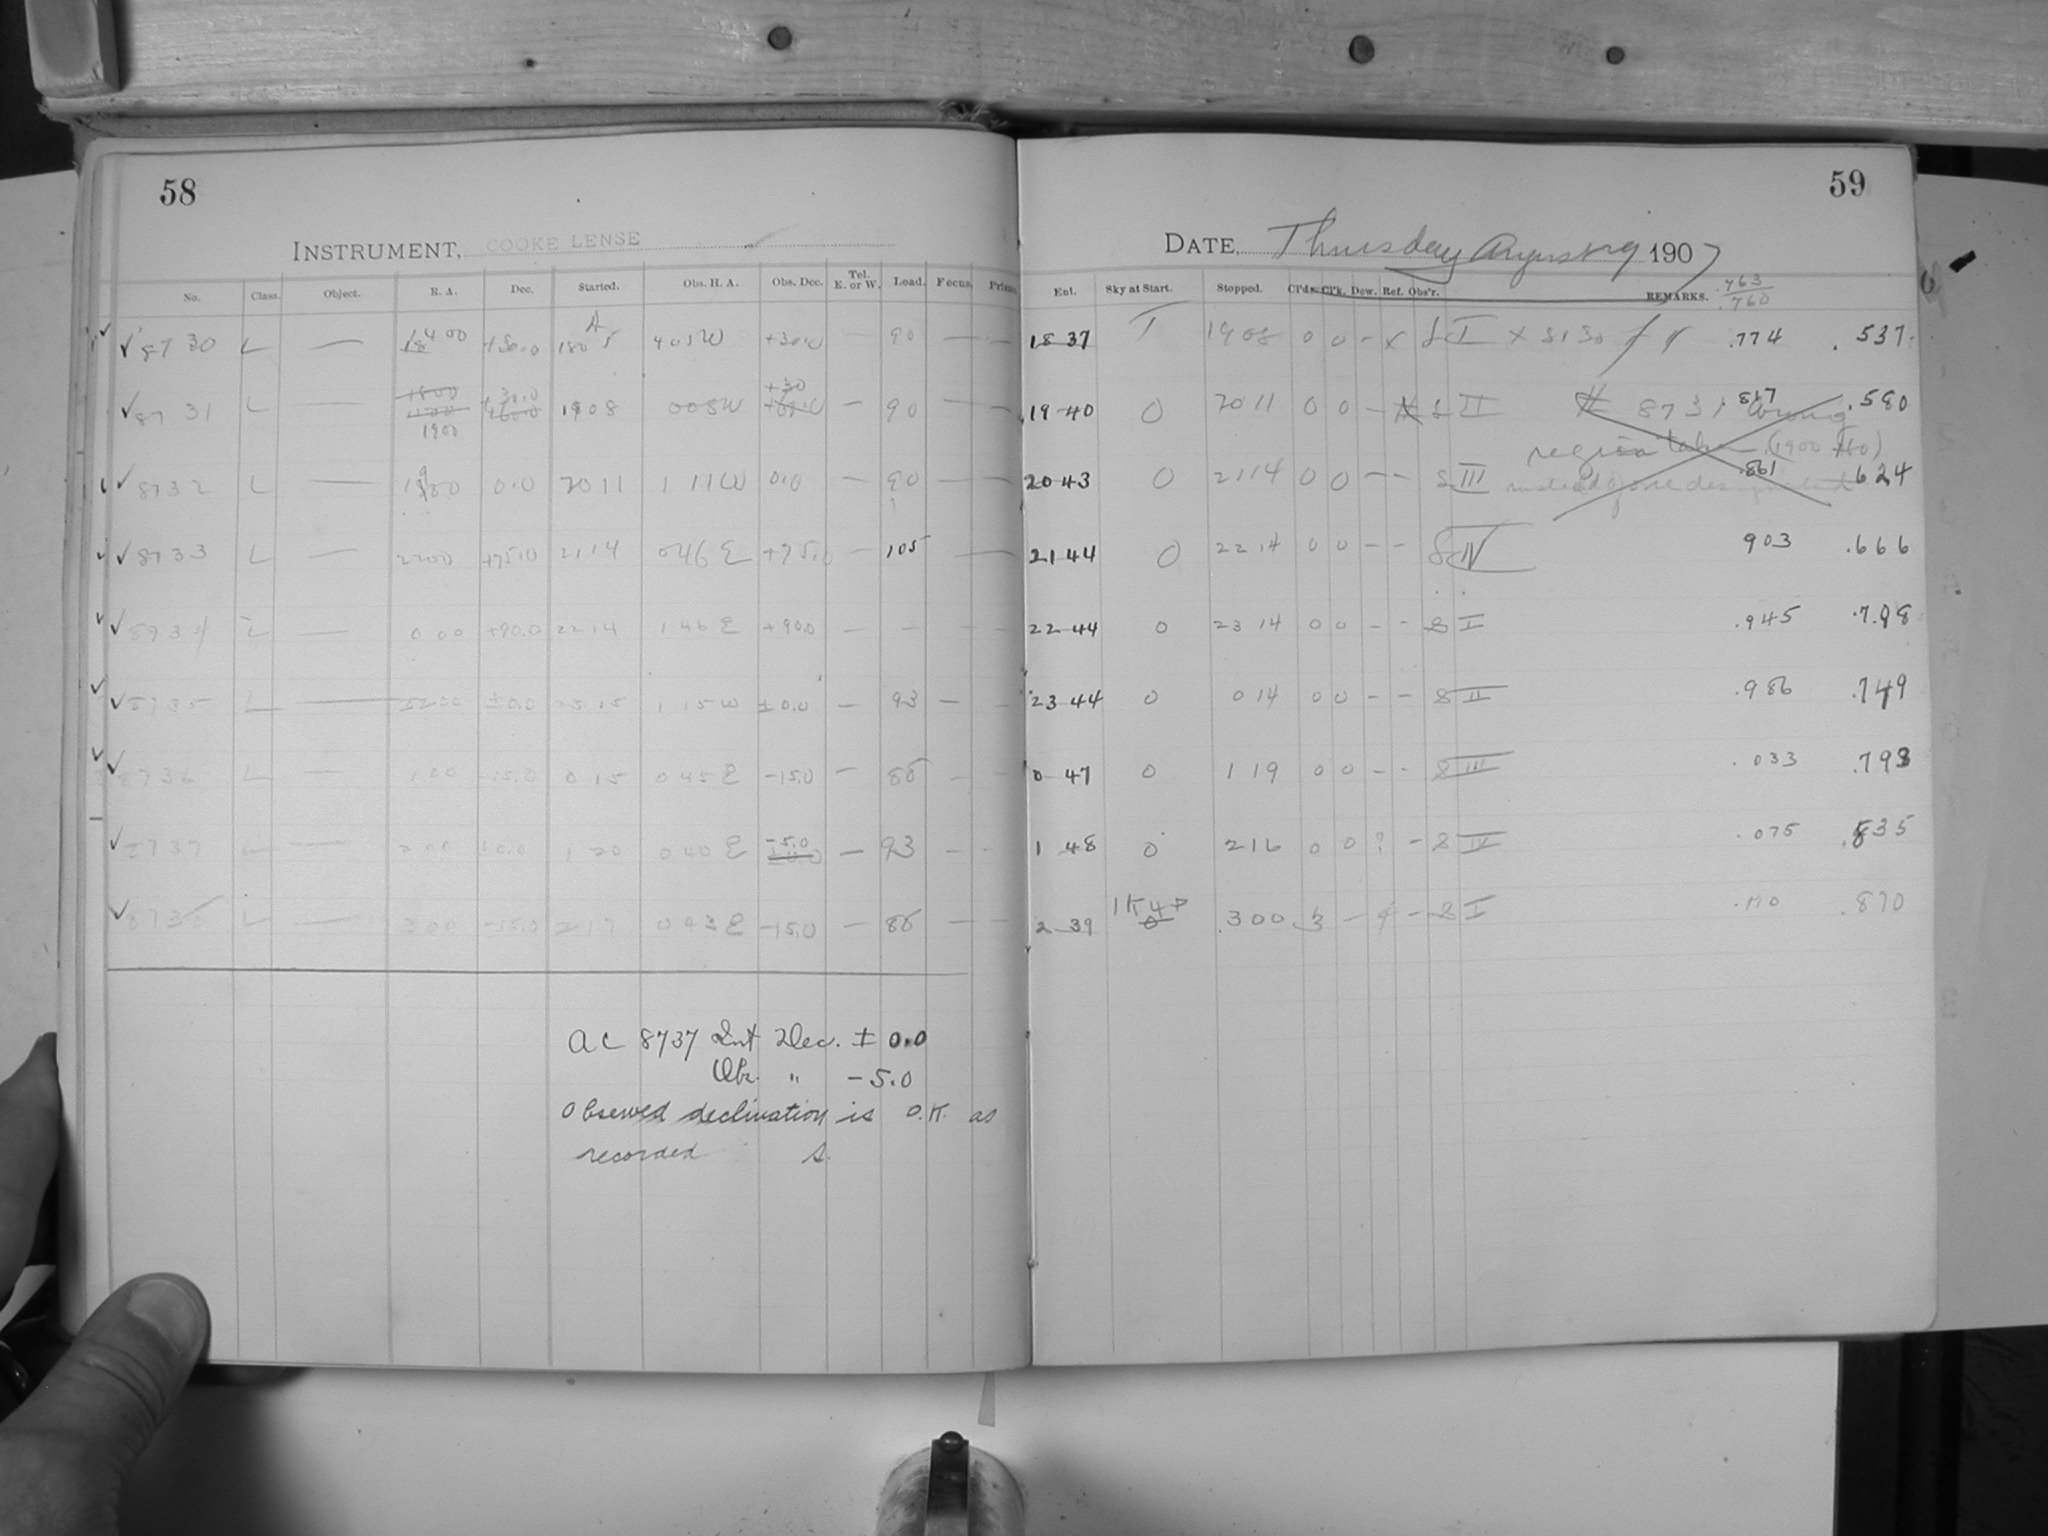 58
INSTRUMENT, COOKE LENSE
No. Class. Object. R. A. Dec. Started. Obs. H. A. Obs. Dec. Tel. E. or W. Load. Focus. Prism
8730 L — 1400 +30.0 1805 405W +30.0 — 90 — —
8731 L — 1800 1900 +30.0 1908 008W +30 — 90 — —
8732 L — 1900 0.0 2011 1 11W 0.0 — 90 — —
8733 L — 2200 +75.0 2114 046E +75.0 — 105 — —
8734 L — 0 00 +90.0 2214 146E +90.0 — — — —
8735 L — 2200 ±0.0 2315 1 15W ±0.0 — 93 — —
8736 L — 1 00 -15.0 0 15 045E -15.0 — 86 — —
8737 L — 2 00 ±0.0 1 20 040E -5.0 ±0.0 — 93 — —
8738 L — 3 00 -15.0 2 17 043E -15.0 — 86 — —
AC 8737 Int Dec. ± 0.0
Obs. " - 5.0
Observed declination is O.K. as
recorded S.
59
DATE, Thursday August 1907
Ent. Sky at Start. Stopped. Cl'ds. Cl'k. Dew. Ref. Obs'r. REMARKS. .763
760
18 37 1908 0 0 - x S I .774 .537
19 40 0 2011 0 0 - S II # 8731 Wrong .817 .580
region taken (1900 +60)
20 43 0 2114 0 0 - - S III instead of one designated .861 .624
21 44 0 2214 0 0 - - S IV 903 .666
22 44 0 2314 0 0 - - S I .945 .708
23 44 0 0 14 0 0 - - S II .986 .749
0 47 0 1 19 0 0 - - S III .033 .793
1 48 0 2 16 0 0 ? - S IV .075 .835
2 39 0 3 00 3 - - S I .110 .870